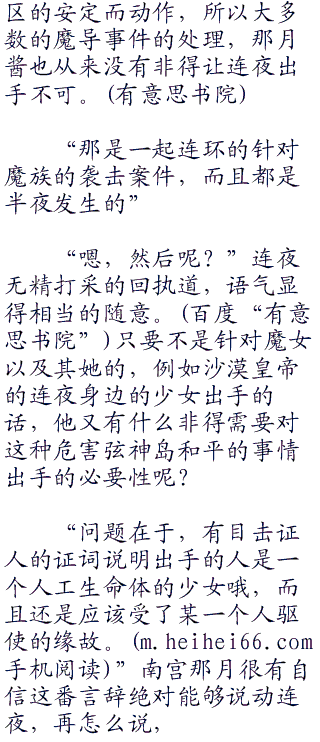 区的安定而动作，所以大多
数的魔导事件的处理，那月
酱也从来没有非得让连夜出
手不可。(有意思书院)
“那是一起连环的针对
魔族的袭击案件，而且都是
半夜发生的”
“嗯，然后呢？”连夜
无精打采的回执道，语气显
得相当的随意。(百度“有意
思书院”)只要不是针对魔女
以及其她的，例如沙漠皇帝
的连夜身边的少女出手的
话，他又有什么非得需要对
这种危害弦神岛和平的事情
出手的必要性呢？
“问题在于，有目击证
人的证词说明出手的人是一
个人工生命体的少女哦，而
且还是应该受了某一个人驱
使的缘故。(m.heihei66.com
手机阅读)”南宫那月很有自
信这番言辞绝对能够说动连
夜，再怎么说，